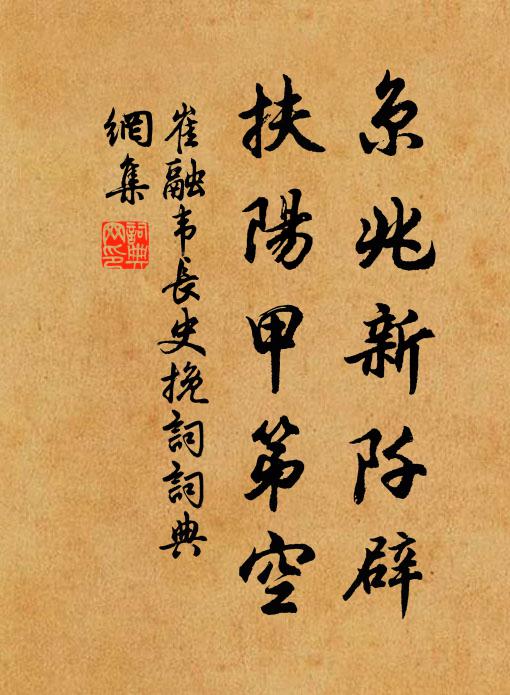 京兆新阡辟
扶陽甲第空
崔融韦長史挽詞詞典
網集
詞典
网印